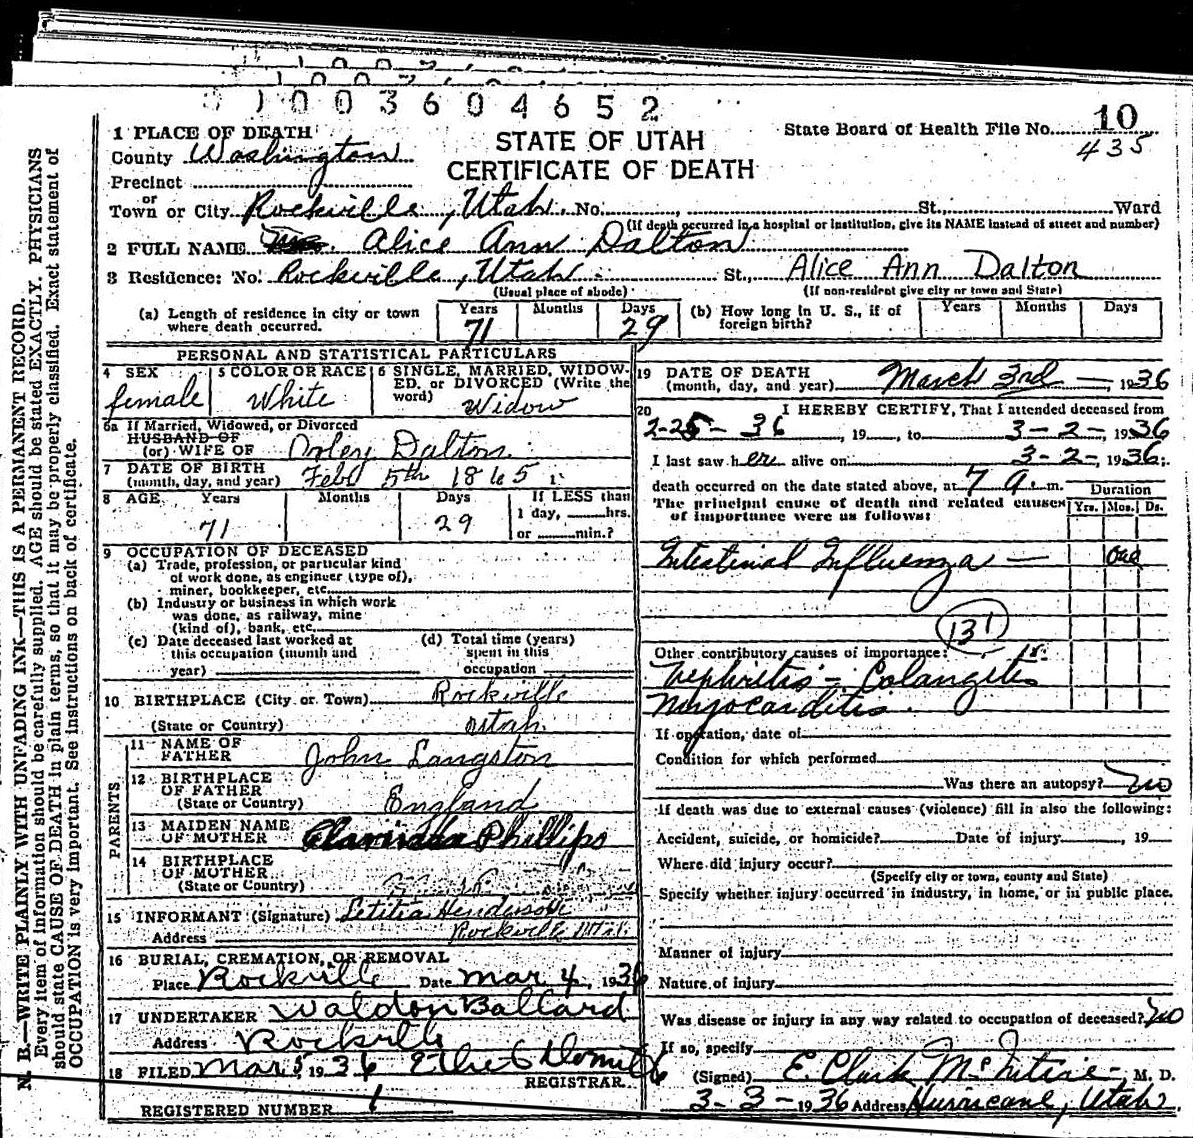 3 1 0 0 3 6 0 4 6 5 2
1 PLACE OF DEATH
County Washington
Precinct
or
Town or City Rockville, Utah. No. , St., Ward
(If death occurred in a hospital or institution, give its NAME instead of street and number)
STATE OF UTAH
CERTIFICATE OF DEATH
State Board of Health File No. 10
435
2 FULL NAME Mrs. Alice Ann Dalton
3 Residence: No. Rockville, Utah St., Alice Ann Dalton
(Usual place of abode) (If non-resident give city or town and State)
(a) Length of residence in city or town where death occurred. Years 71 Months Days 29
(b) How long in U. S., if of foreign birth? Years Months Days
PERSONAL AND STATISTICAL PARTICULARS
4 SEX female
5 COLOR OR RACE White
6 SINGLE, MARRIED, WIDOWED, or DIVORCED (Write the word) Widow
6a If Married, Widowed, or Divorced
HUSBAND OF
(or) WIFE OF Orley Dalton
7 DATE OF BIRTH
(month, day, and year) Feby 5th 1865
8 AGE Years 71 Months Days 29
If LESS than
1 day, hrs.
or min.?
9 OCCUPATION OF DECEASED
(a) Trade, profession, or particular kind
of work done, as engineer (type of),
miner, bookkeeper, etc.
(b) Industry or business in which work
was done, as railway, mine
(kind of), bank, etc.
(c) Date deceased last worked at
this occupation (month and
year)
(d) Total time (years)
spent in this
occupation
10 BIRTHPLACE (City or Town) Rockville
(State or Country) Utah
PARENTS
11 NAME OF
FATHER John Langston
12 BIRTHPLACE
OF FATHER
(State or Country) England
13 MAIDEN NAME
OF MOTHER Clarinda Phillips
14 BIRTHPLACE
OF MOTHER
(State or Country)
15 INFORMANT (Signature) Letitia Henderson
Address Rockville Utah
16 BURIAL, CREMATION, OR REMOVAL
Place Rockville Date Mar 4, 1936
17 UNDERTAKER Waldon Ballard
Address Rockville
18 FILED Mar 5 1936
REGISTRAR
REGISTERED NUMBER 1
19 DATE OF DEATH
(month, day, and year) March 3rd — , 1936
20 I HEREBY CERTIFY, That I attended deceased from
2-25-36, 19 , to 3-2-, 1936
I last saw her alive on 3-2-, 1936;
death occurred on the date stated above, at 7 a. m.
The principal cause of death and related causes
of importance were as follows:
Duration
Yrs. Mos. Ds.
Intestinal Influenza — One
131
Other contributory causes of importance:
Nephritis - Colangitis
Myocarditis.
If operation, date of
Condition for which performed
Was there an autopsy? No
If death was due to external causes (violence) fill in also the following:
Accident, suicide, or homicide? Date of injury , 19
Where did injury occur?
(Specify city or town, county and State)
Specify whether injury occurred in industry, in home, or in public place.
Manner of injury
Nature of injury
Was disease or injury in any way related to occupation of deceased? No
If so, specify
(Signed) E. Clark McIntire M. D.
3-3-1936 Address Hurricane, Utah.
N. B.—WRITE PLAINLY WITH UNFADING INK—THIS IS A PERMANENT RECORD.
Every item of information should be carefully supplied. AGE should be stated EXACTLY. PHYSICIANS
should state CAUSE OF DEATH in plain terms, so that it may be properly classified. Exact statement of
OCCUPATION is very important. See instructions on back of certificate.